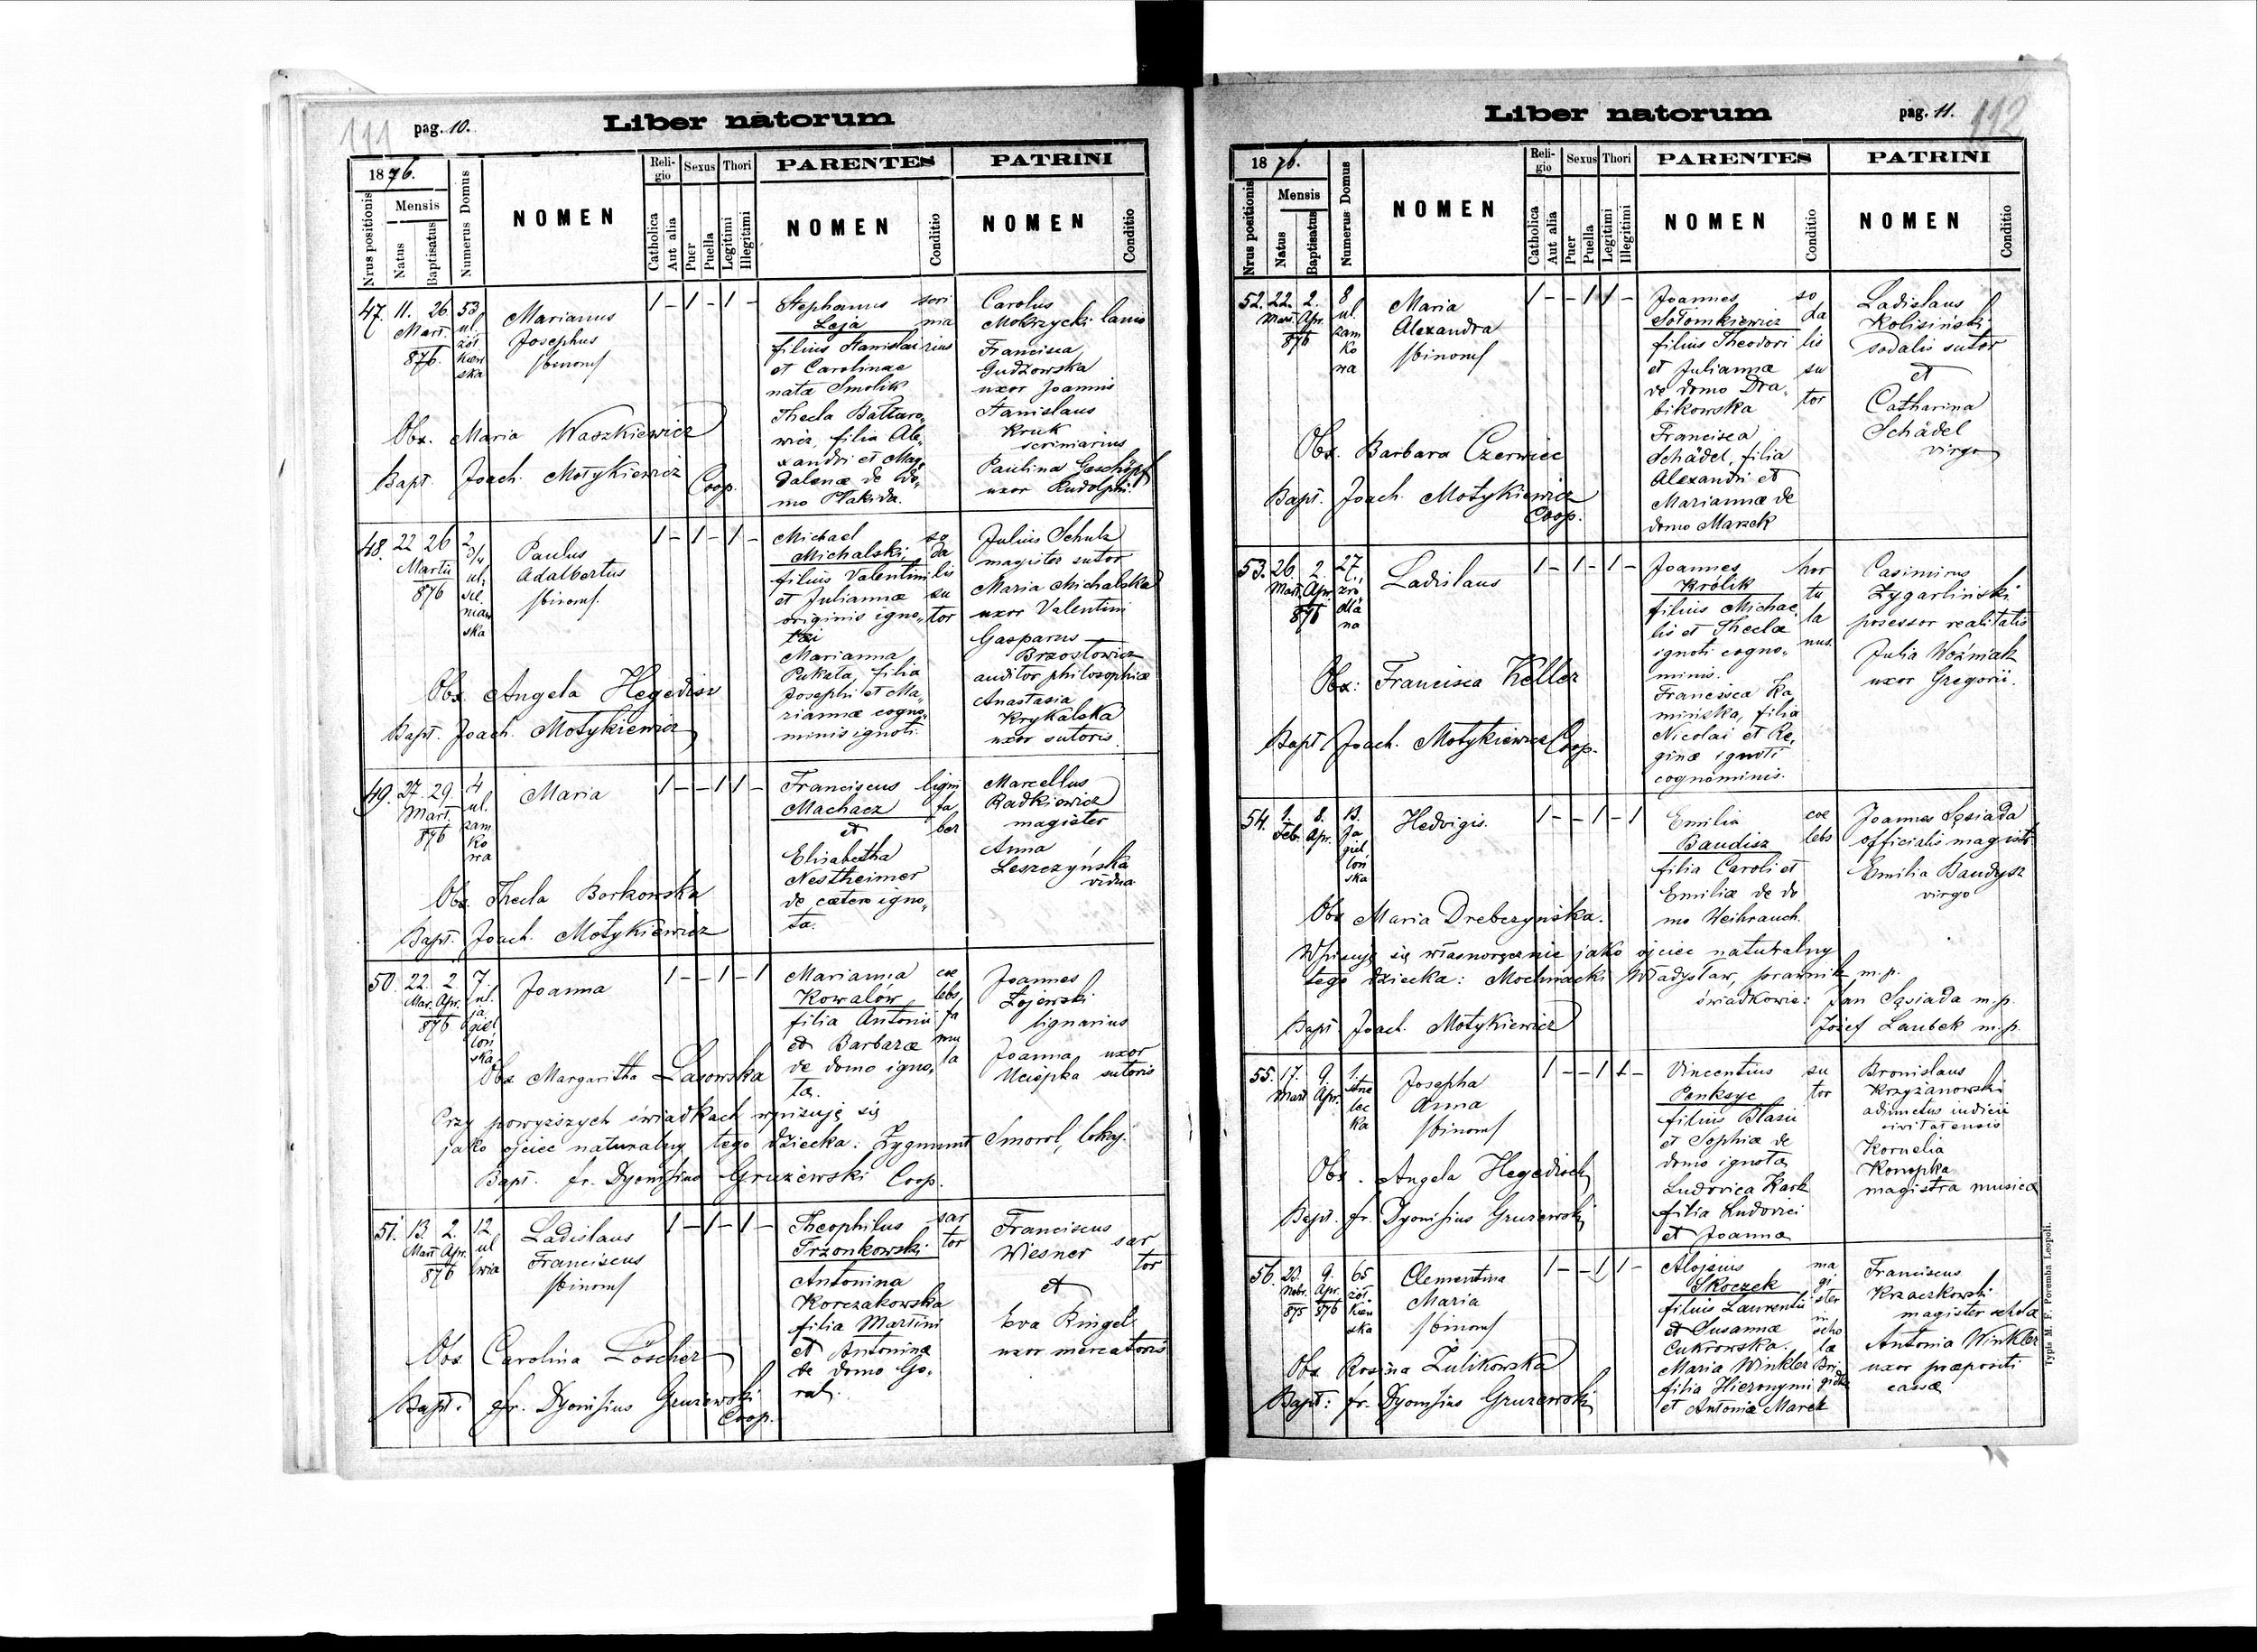 111 pag. 10. Liber natorum
1876.
Mensis
Nrus positionis
Natus
Baptisatus
Numerus Domus
NOMEN
Reli-
gio
Catholica
Aut alia
Sexus
Puer
Puella
Thori
Legitimi
Illegitimi
PARENTES
NOMEN
Conditio
PATRINI
NOMEN
Conditio
47. 11. 26 53
Mart. ul.
876. żół
kiew
ska
Marianus
Josephus
/binom/
1 – 1 – 1 –
Stephanus scri
Leja nia
filius Stanislai rius
et Carolinae
nata Smolik
Thecla Battaro„
wicz, filia Ale„
xandri et Mag„
dalenæ de do„
mo Plakida.
Carolus
Mokrzycki lanio
Francisca
Gudzowska
uxor Joannis
Stanislaus
Kruk
scriniarius
Paulina Geschöpf
uxor Rudolphi.
Obx. Maria Waszkiewicz
Bapt. Joach. Motykiewicz Coop.
48. 22 26 2 3/4
Martii ul.
876 sie
niaw
ska
Paulus
Adalbertus
/binom/.
1 – 1 – 1 –
Michael so
Michalski, da
filius Valentini lis
et Juliannæ su
originis igno„ tor
tæi
Marianna
Pukała, filia
Josephi et Ma„
riannæ cogno„
minis ignoti.
Julius Schulz
magister sutor
Maria Michalska
uxor Valentini
Gasparus
Brzostowicz
auditor philosophiæ
Anastasia
Krykalska
uxor sutoris.
Obx. Angela Hegedisz
Bapt. Joach. Motykiewicz
49. 27. 29. 4
Mart. ul.
876 zam
ko
wa
Maria
1 – – 1 1 –
Franciscus ligni
Machacz fa„
et ber
Elisabetha
Nestheimer
de cætero igno„
ta.
Marcellus
Radkiewicz
magister
Anna
Leszczyńska
vidua
Obx. Thecla Borkowska
Bapt. Joach. Motykiewicz
50. 22. 2. 7.
Mar. Apr. ul.
876 ja
giel
loń
ska
Joanna
1 – – 1 – 1
Marianna coe
Kowalów, lebs,
filia Antonii fa
et Barbaræ mu
de domo igno„ la
ta.
Joannes
Łojewski
lignarius
Joanna uxor
Uciópka sutoris
Obx Margaritha Lasowska
Przy powyższych świadkach wpisuję się
jako ojciec naturalny tego dziecka: Zygmunt Smorol, lokaj.
Bapt. fr. Dyonisius Gruzewski Coop.
51. 13. 2. 12
Mart Apr. ul
876 lwia
Ladislaus
Franciscus
/binom/
1 – 1 – 1 –
Theophilus sar
Trzonkowski tor
Antonina
Korczakowska
filia Martini
et Antoninæ
de domo Go„
ral.
Franciscus
Wiesner sar
tor
et
Eva Ringel
uxor mercatoris
Obx Carolina Löscher
Bapt. fr. Dyonisius Gruzewski
Coop.
Liber natorum pag. 11. 112
1876.
Mensis
Nrus positionis
Natus
Baptisatus
Numerus Domus
NOMEN
Reli-
gio
Catholica
Aut alia
Sexus
Puer
Puella
Thori
Legitimi
Illegitimi
PARENTES
NOMEN
Conditio
PATRINI
NOMEN
Conditio
52. 22. 2. 8
Mart. Apr. ul.
876 zam
ko
wa
Maria
Alexandra
/binom/
1 – – 1 1 –
Joannes so
Sołomkiewicz da
filius Theodori lis
et Juliannæ su
de domo Dra„ tor
bikowska
Francisca
Schädel, filia
Alexandri et
Mariannæ de
domo Marzek
Ladislaus
Kolisiński
sodalis sutor
et
Catharina
Schädel
virgo
Obx. Barbara Czerwiec
Bapt. Joach. Motykiewicz
Coop.
53. 26. 2. 27.
Mart. Apr. źró
876 dla
na
Ladislaus
1 – 1 – 1 –
Joannes hor
Królik tu
filius Michae„ la
lis et Theclæ nus.
ignoti cogno„
minis.
Francisca Ka„
mińska, filia
Nicolai et Re„
ginæ ignoti
cognominis.
Casimirus
Zygarliński
posessor realitatis
Julia Woźniak
uxor Gregorii.
Obx: Francisca Keller
Bapt Joach. Motykiewicz Coop.
54. 1. 8. 13.
Feb. Apr. Ja
giel
loń
ska
Hedvigis.
1 – – 1 – 1
Emilia coe
Baudisz lebs
filia Caroli et
Emiliæ de do
mo Weihrauch.
Joannes Sąsiada
officialis magistr.
Emilia Baudysz
virgo
Obx Maria Drebczyńska.
Wpisuję się własnoręcznie jako ojciec naturalny
tego dziecka: Mochnacki Władysław, prawnik m.p.
świadkowie: Jan Sąsiada m.p.
Józef Laubek m.p.
Bapt Joach. Motykiewicz
55. 17. 9. 1.
Mart Apr.
lec
ka
Josepha
Anna
/binom/
1 – – 1 1 –
Vincentius su
Penksyc tor
filius Blasii
et Sophiæ de
domo ignota
Ludovica Kark
filia Ludovici
et Joannæ
Bronislaus
Krzyżanowski
adiunctus iudicii
civitatensis
Kornelia
Konopka
magistra musicæ
Obx. Angela Hegedisch
Bapt. fr. Dyonisius Gruzewski
56. 23. 9. 65
Nobr. Apr. żół
875 876 kiew
ska
Clementina
Maria
/binom/
1 – – 1 1 –
Aloisius ma
Skoczek gi
filius Laurentii ster
et Susannæ in
Cukrowska. scho
Maria Winkler la
filia Hieronymi Bri
et Antoniæ Marek gidk
Franciscus
Krzaczkowski
magister schola
Antonia Winkler
uxor præpositi
cassæ
Obx Rosina Zulikowska
Bapt: fr. Dyonisius Gruzewski
Typis M. F. Poremba Leopoli.